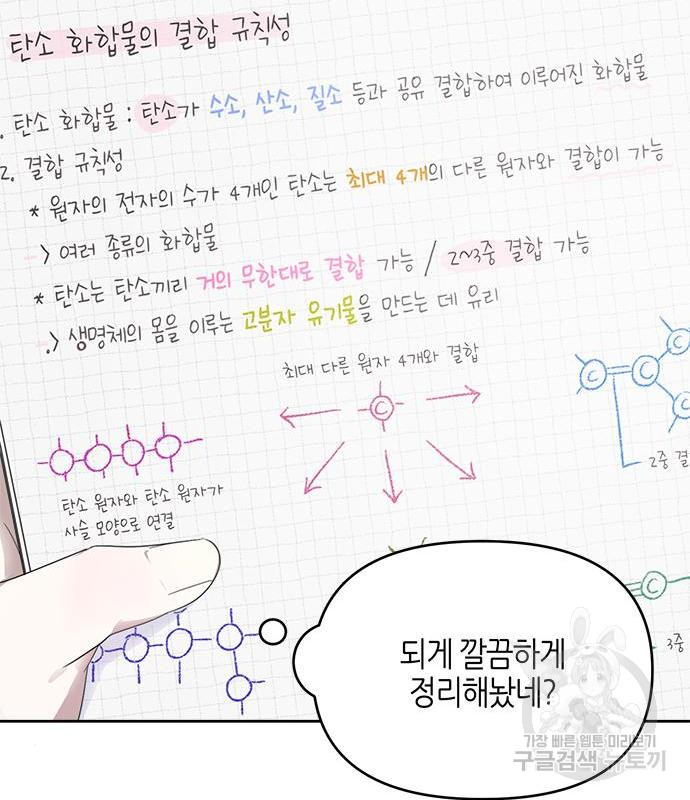 탄소 화합물의 결합 규칙성
. 탄소 화합물 : 탄소가 수소, 산소, 질소 등과 공유 결합하여 이루어진 화합물
2. 결합 규칙성
* 원자의 전자의 수가 4개인 탄소는 최대 4개의 다른 원자와 결합이 가능
-> 여러 종류의 화합물
* 탄소는 탄소끼리 거의 무한대로 결합 가능 / 2~3중 결합 가능
-> 생명체의 몸을 이루는 고분자 유기물을 만드는 데 유리
최대 다른 원자 4개와 결합
C
C
C
C
C
2중 결
탄소 원자와 탄소 원자가
사슬 모양으로 연결
C
3중
되게 깔끔하게
정리해놨네?
가장 빠른 웹툰 미리보기
구글검색 뉴토끼